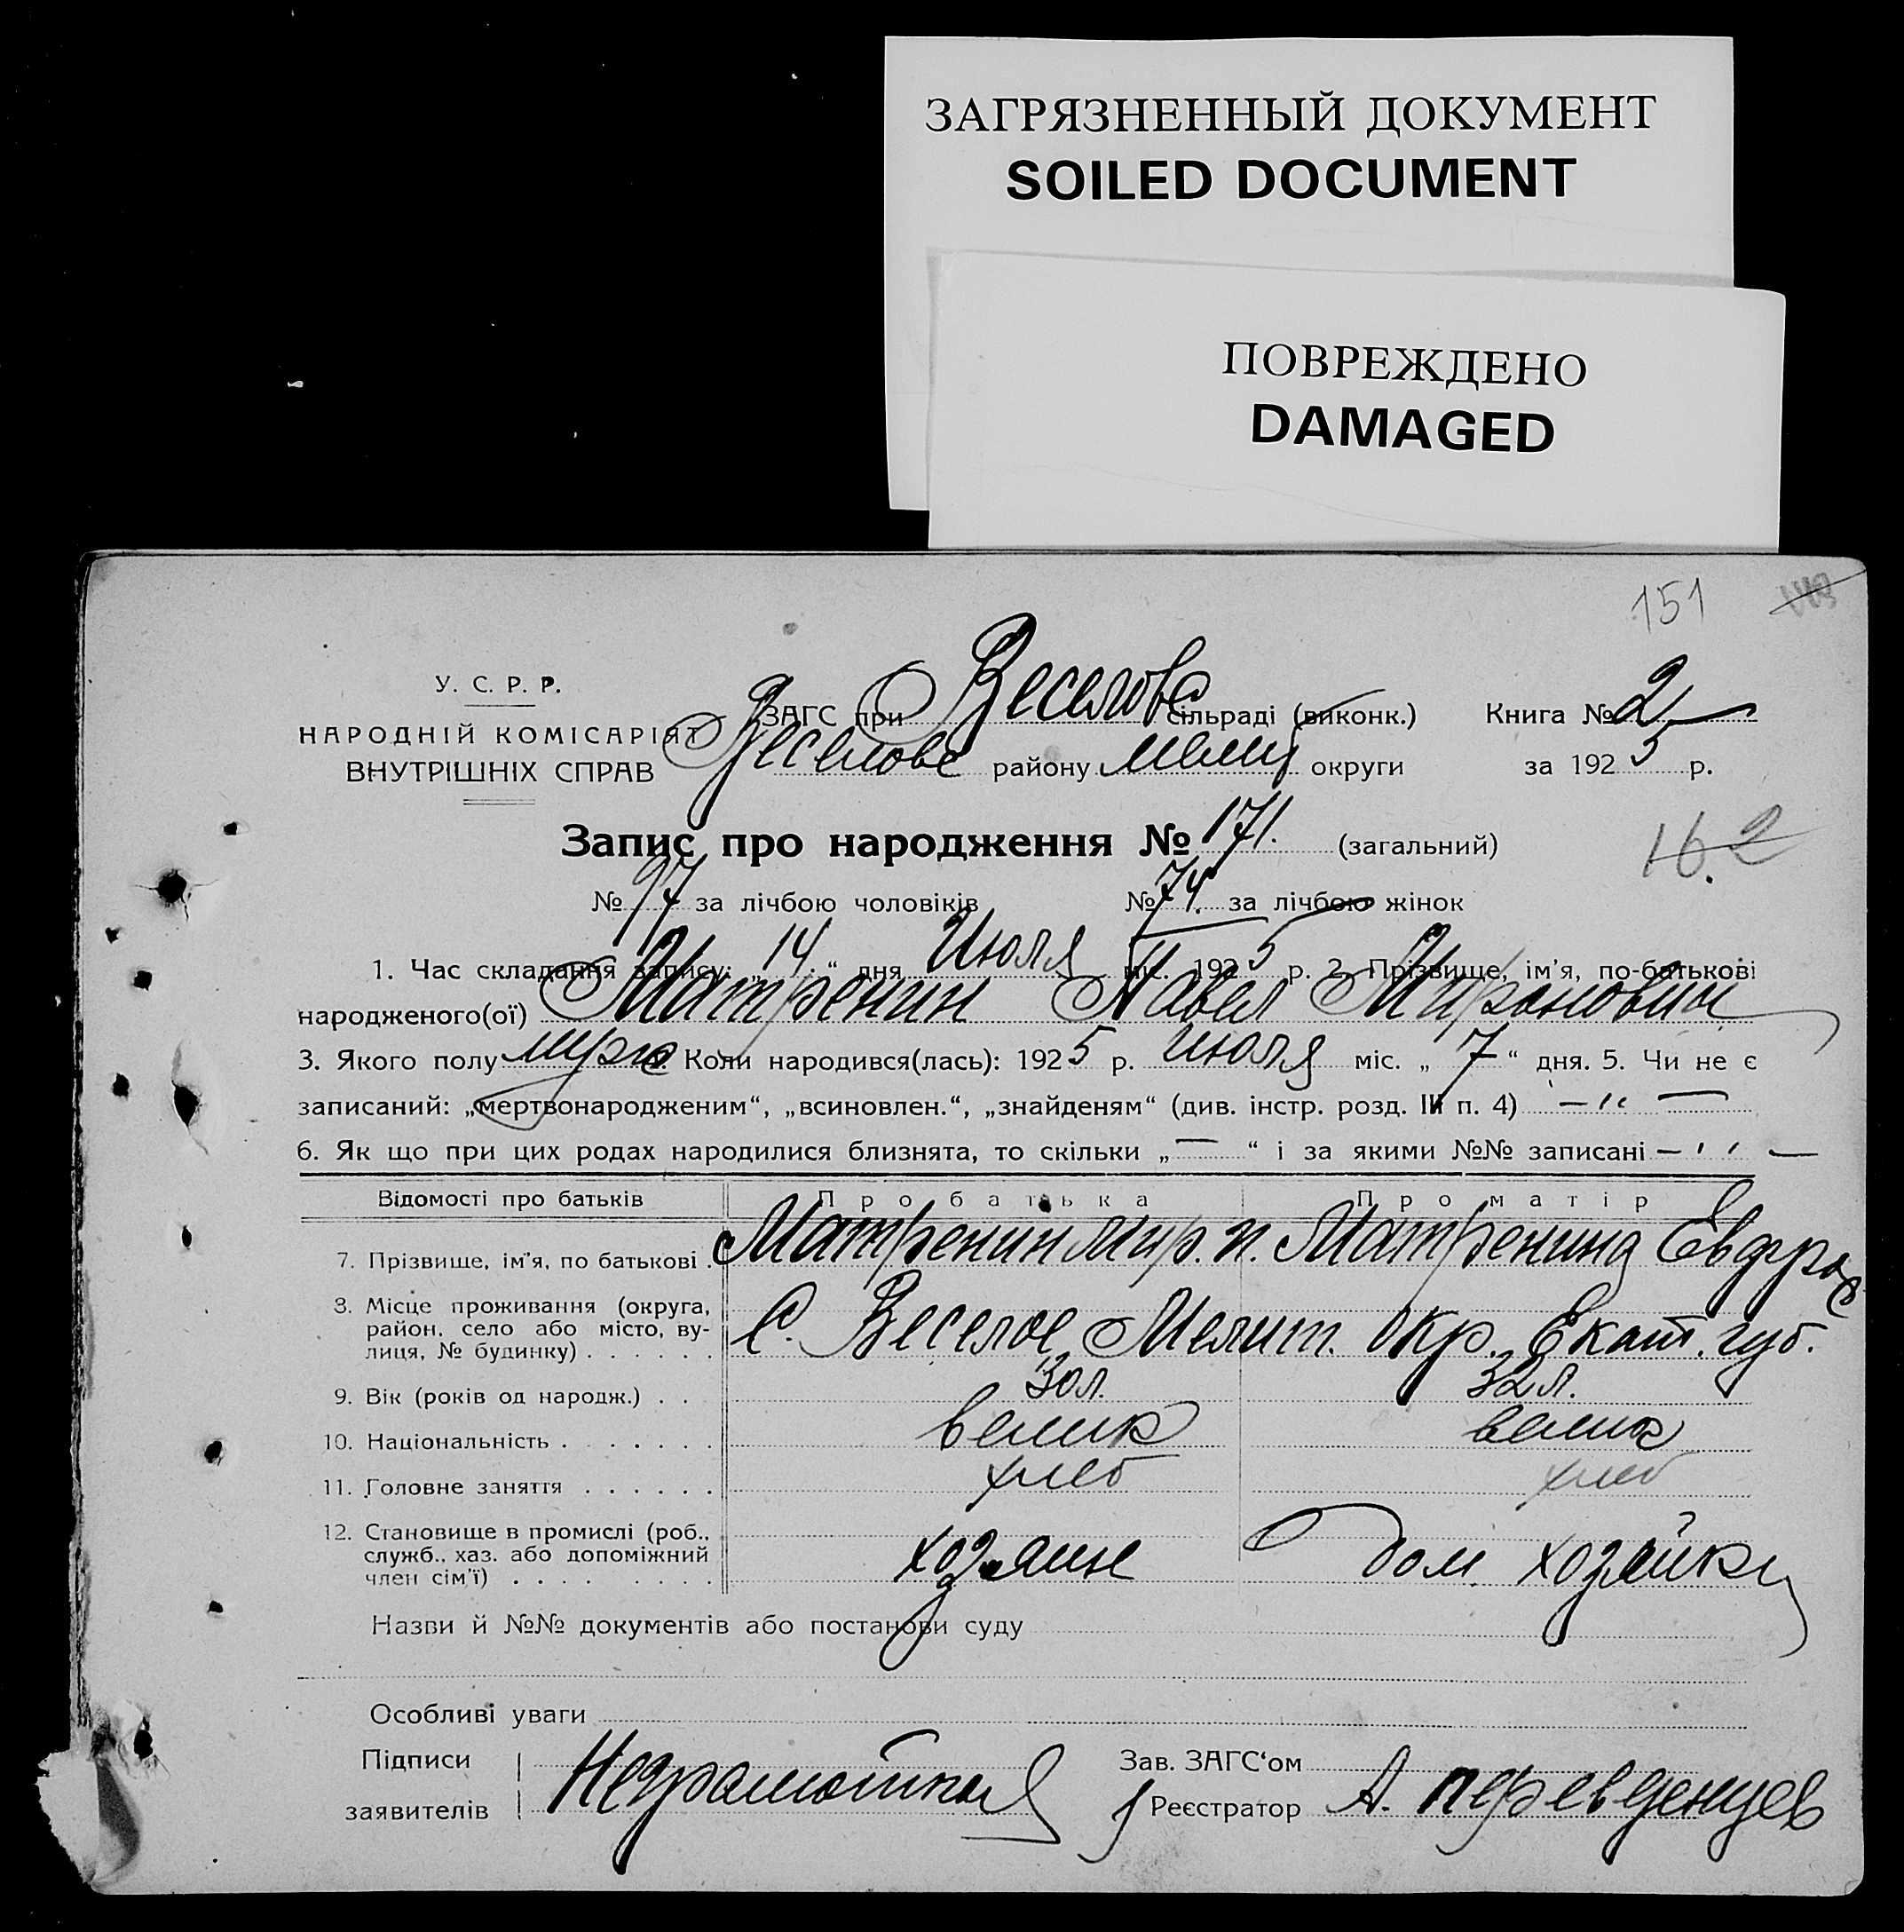 ЗАГРЯЗНЕННЫЙ ДОКУМЕНТ
SOILED DOCUMENT
ПОВРЕЖДЕНО
DAMAGED
151
У. С. Р. Р.
НАРОДНІЙ КОМІСАРІЯТ
ВНУТРІШНІХ СПРАВ
ЗАГС при Веселове сільраді (виконк.) Книга № 2
Веселове району Мелит округи за 1925 р.
Запис про народження № 171. (загальний)
16.2
№ 97 за лічбою чоловіків № 74. за лічбою жінок
1. Час складання запису: „14“ дня Июля міс. 1925 р. 2. Прізвище, ім'я, по-батькові
народженого(ої) Матренин Павел Миронович
3. Якого полу муж Коли народився(лась): 1925 р. Июля міс. „7“ дня. 5. Чи не є
записаний: „мертвонародженим“, „всиновлен.“, „знайденям“ (див. інстр. розд. III п. 4) — „ —
6. Як що при цих родах народилися близнята, то скільки „—“ і за якими №№ записані — „ —
Відомості про батьків Про батька Про матір
7. Прізвище, ім'я, по батькові . Матренин Мир. П. Матренина Евфрос
8. Місце проживання (округа, район, село або місто, ву-
лиця, № будинку) . . . . . . С. Веселое Мелит. окр. Екат. губ.
9. Вік (років од народж.) . . 30 л. 32 л.
10. Національність . . . . . . . велик велик
11. Головне заняття . . . . . . хлеб хлеб
12. Становище в промислі (роб.,
служб., хаз. або допоміжний
член сім'ї) . . . . . . . . хозяин дом. хозяйка
Назви й №№ документів або постанови суду
Особливі уваги
Підписи Зав. ЗАГС‘ом
заявителів Неграмотная Реєстратор А. Переведенцев